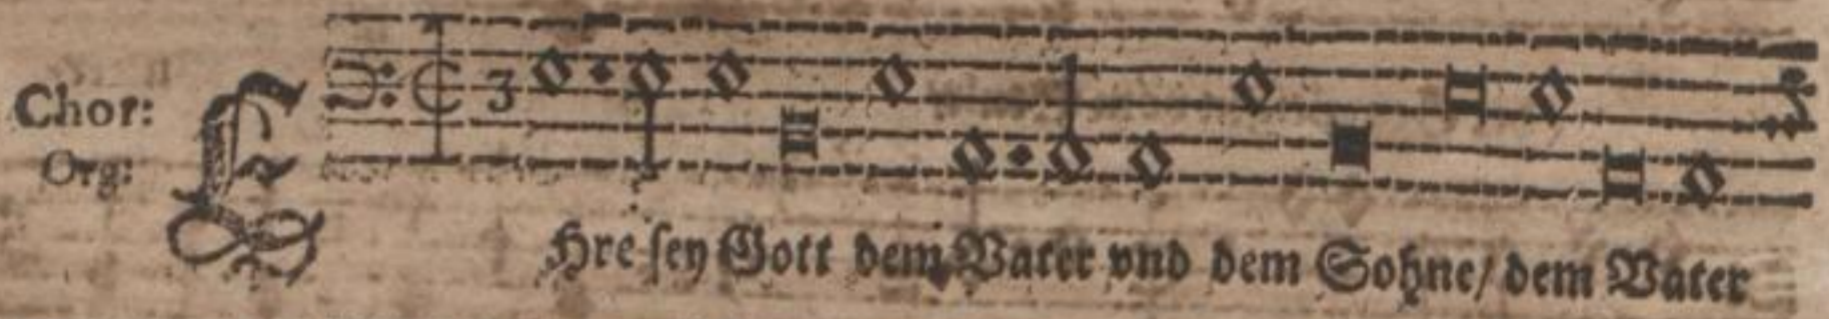 Chor:
Org:
EHre sey Gott dem Vater vnd dem Sohne/ dem Vater